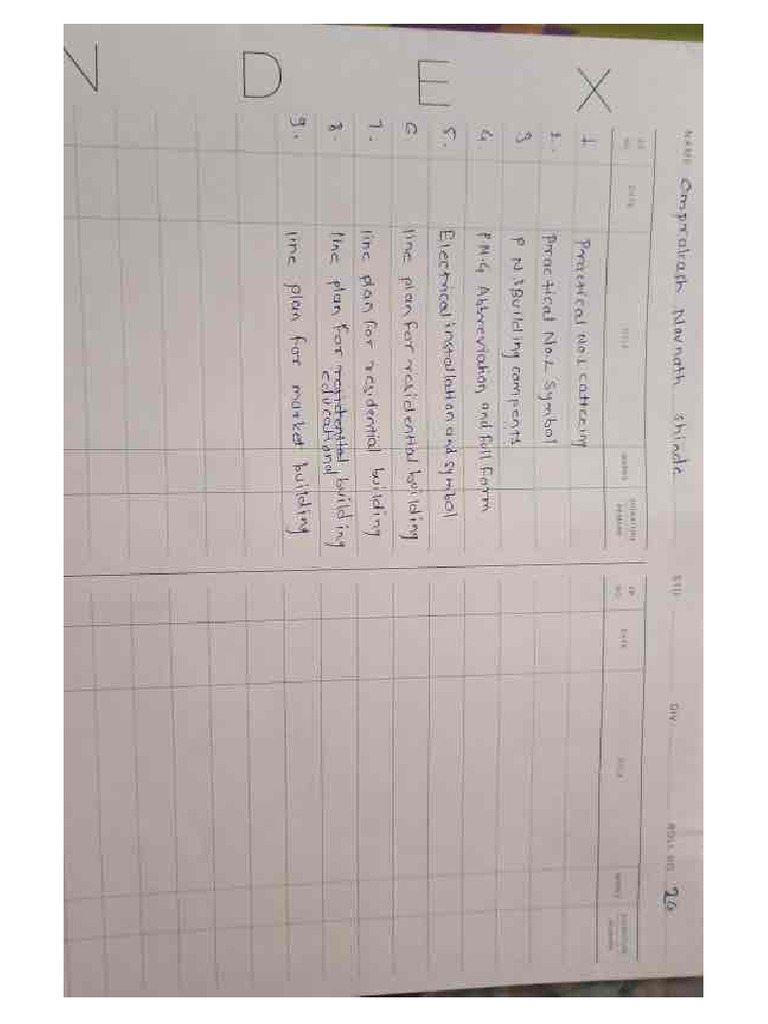 N D E X
NAME: Omprakash Navnath Shinde STD. DIV. ROLL NO. 20
SR. NO. DATE TITLE MARKS SIGNATURE REMARK SR. NO. DATE TITLE MARKS SIGNATURE REMARK
1 Practical No.1 Lattering
2. Practical No.2 Symbol
3 P.N.3 Building campents
4. P.N.4 Abbreviation and full Form
5. Electrical installation and symbol
6 line plan for residential building
7. line plan for residential building
8. line plan for residential building
educational
9. line plan for market building